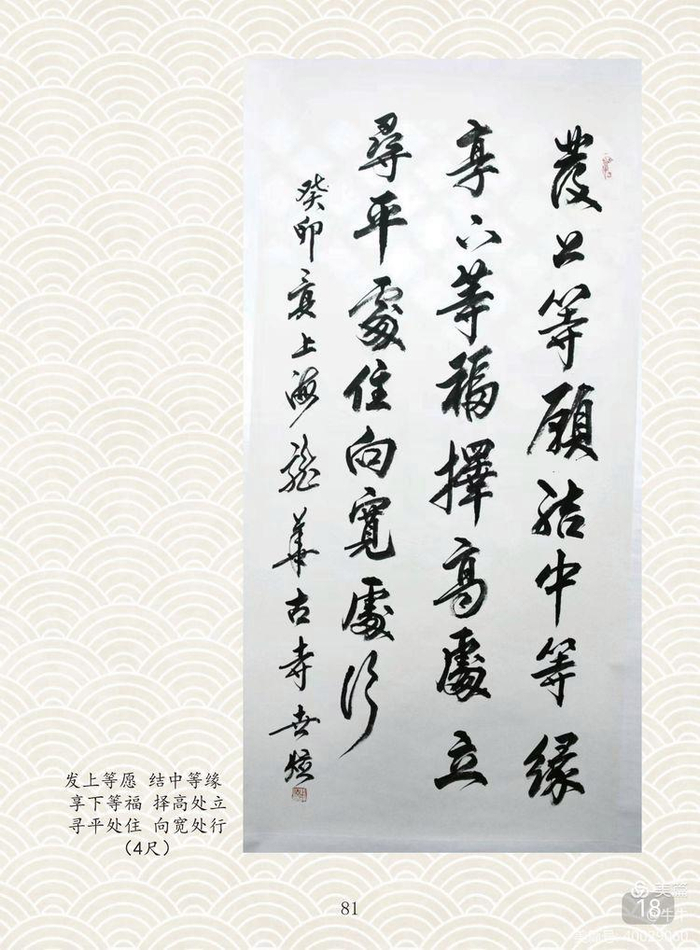 發上等願結中等緣
享下等福擇高處立
尋平處住向寬處行
癸卯夏上海龍華古寺
发上等愿 结中等缘
享下等福 择高处立
寻平处住 向宽处行
（4尺）
81
18
美篇
@牛牛